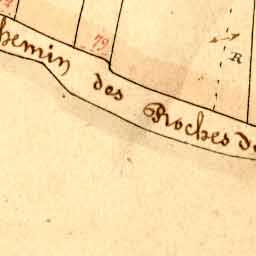 79
R
hemin des Roches de